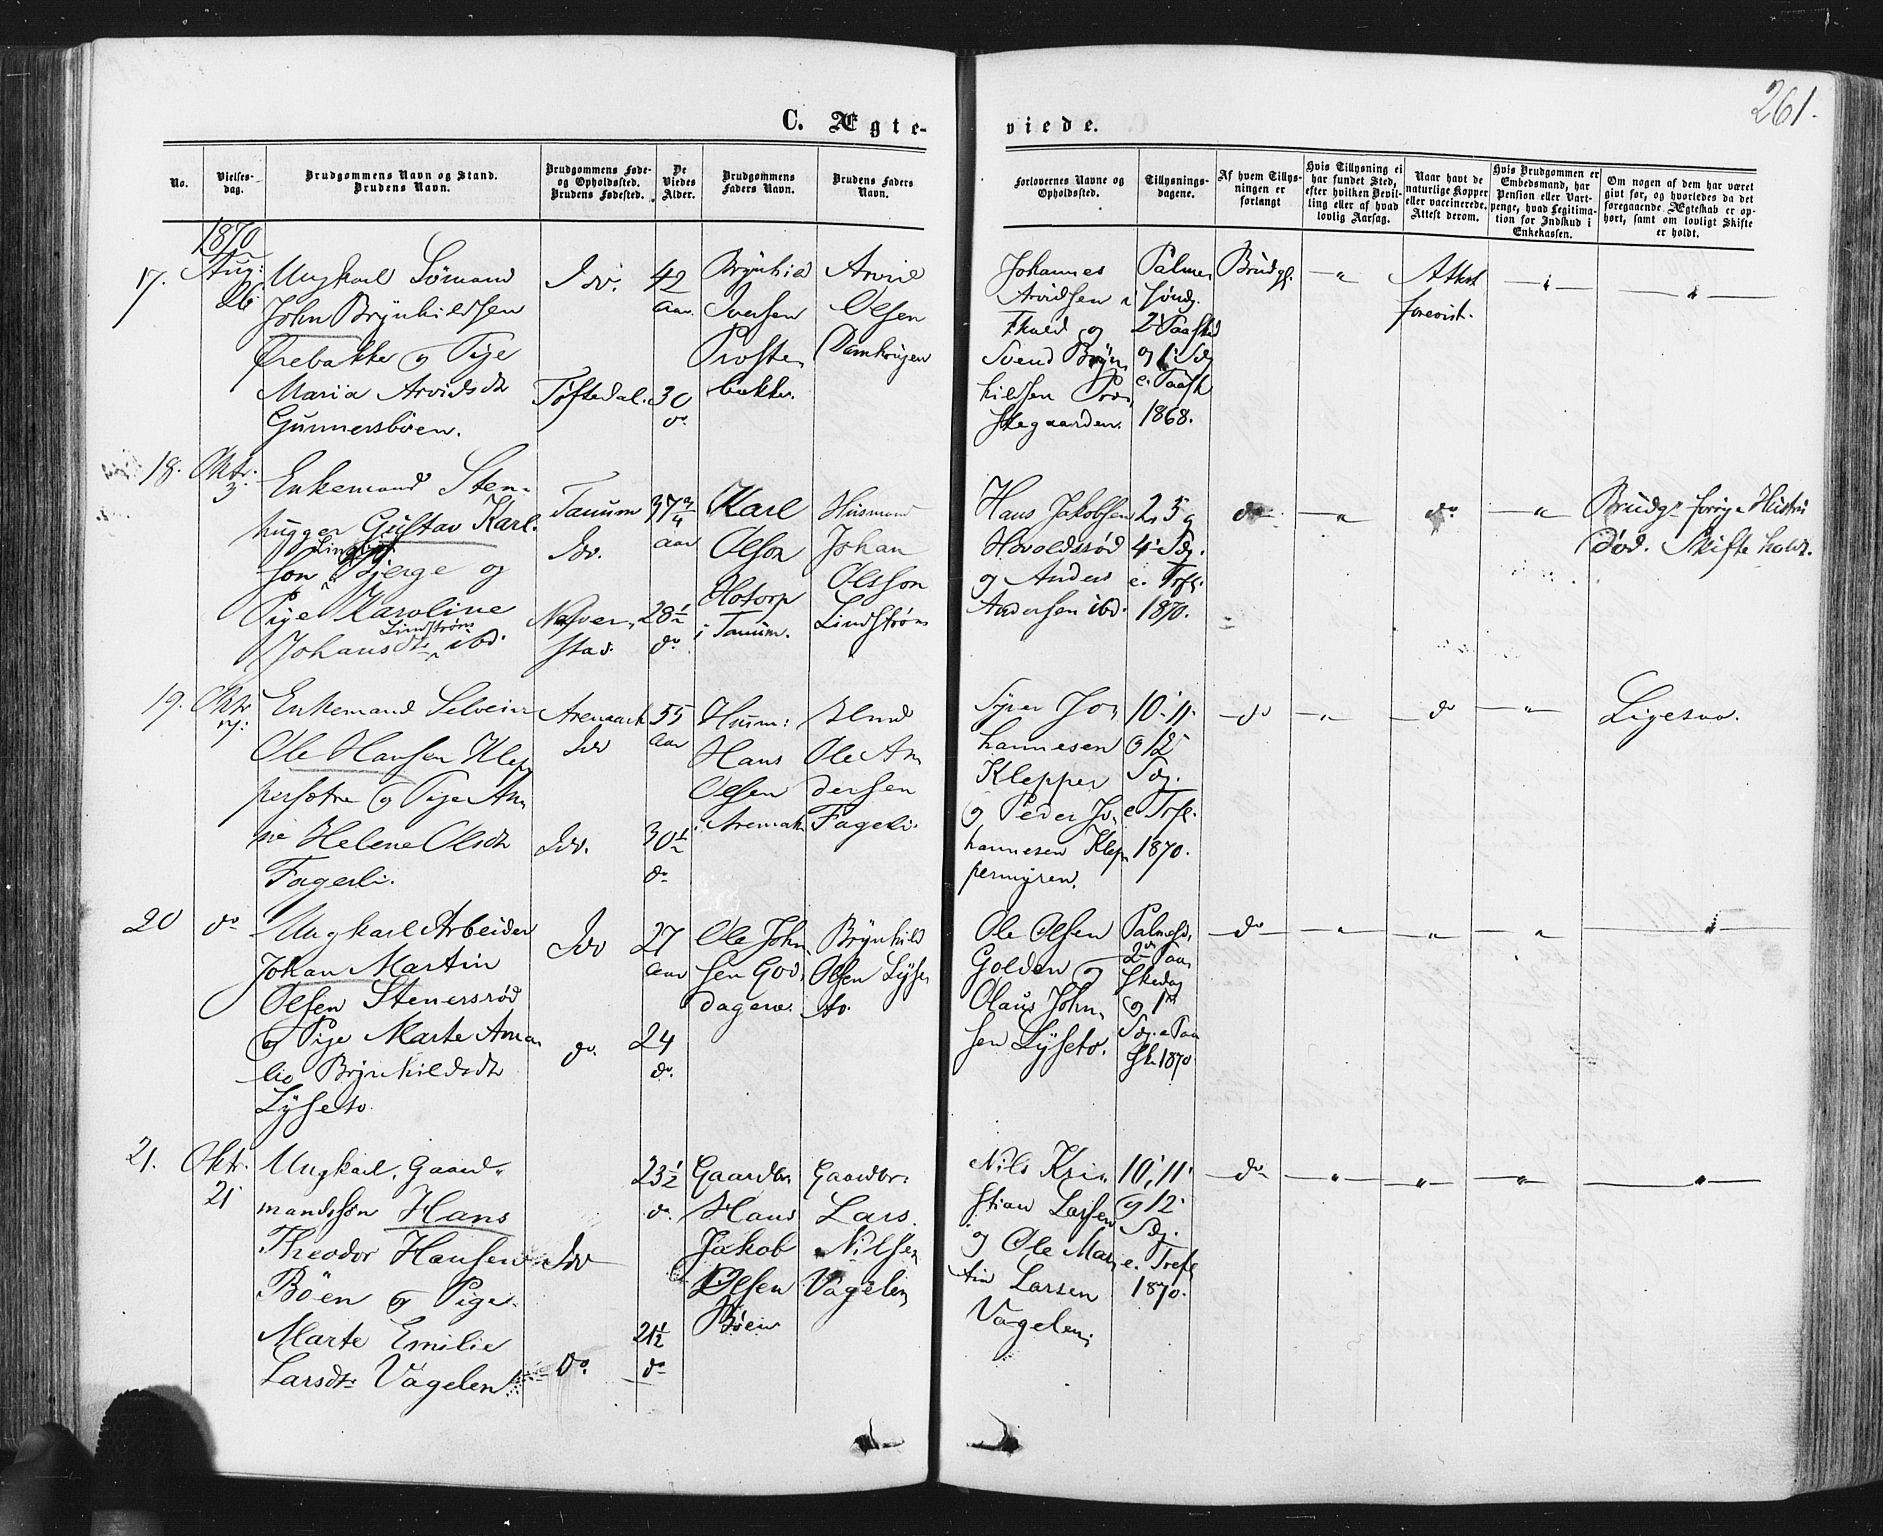 261.
C. Ægteviede.
No.
Vielsesdag.
Brudgommens Navn og Stand.
Brudens Navn.
Brudgommens Føde-
og Opholdssted.
Brudens Fødested.
De
Viedes
Alder.
Brudgommens
Faders Navn.
Brudens Faders
Navn.
Forlovernes Navne og
Opholdssted.
Tillysnings-
dagene.
Af hvem Tillys-
ningen er
forlangt
Hvis Tillysning ei
har fundet Sted,
efter hvilken Bevil-
ling eller af hvad
lovlig Aarsag.
Naar havt de
naturlige Kopper
eller vaccinerede.
Attest derom.
Hvis Brudgommen er
Embedsmand, har
Pension eller Vart-
penge, hvad Legitima-
tion for Indskud i
Enkekassen.
Om nogen af dem har været
gift før, og hvorledes da det
foregaaende Ægteskab er op-
hørt, samt om lovligt Skifte
er holdt.
1870
17.
Aug:
26
Ungkarl Sømand
John Brynhildsen
Præbakke og Pige
Maria Arvidsdtr
Gunnersbøen.
Idd.
Tøftedal.
42
aar
30
do
Brynhild
Iversen
Præste-
bakke.
Arvid
Olsen
Johannes
Arvidsen i
og
Svend Bryn-
hildsen Præ-
stegaarden.
Palme-
sønd.
2. Paaskd
og 1. Sdg
e. Paask
1868.
Brudg.
"
Attest
forevist.
"
"
18.
Oktr.
3
Enkemand Sten-
hugger Gustav Karl-
son Bjerge og
Pige Karoline
Lindstrøm
Johansdtr ibd.
Tanum
Idv.
Naver-
stad.
37 3/4
aar
28 1/2
do
Karl
Olson
Hotorp
i Tanum.
Husmand
Johan
Olsson
Lindstrøm
Hans Jakobsen
Havoldsrød
og Anders
Andersen ibd.
2, 3 g
4. Sdg.
e. Trf.
1870.
do
"
do
"
Brudg. forrige Hustru
død. Skifte holdt.
19.
Oktr
Enkemand Selveier
Ole Hansen Klep-
persætre og Pige An-
ne Helene Olsdtr
Fagerli.
Aremark
Idd
Idd.
55
aar
30 1/2
do
Husm:
Hans
Olsen
Aremark
Ole An-
dersen
Fageli.
Syver Jo-
hannesen
Klepper
og Peder Jo-
hannesen Klep-
permyren.
10. 11.
g 12
Sdg.
e. Trf.
1870.
do
"
do
"
Ligesaa.
20
do
Ungkarl Arbeider
Johan Martin
Olsen Stenersrød
og Pige Marte Ama-
lie Brynhildsdtr
Lyseto.
Idd
do.
27
aar
24
do.
Ole John-
sen God-
dagene.
Brynhild
Olsen Lyse-
to.
Ole Olsen
Golden og
Olaus John-
sen Lyseto.
Palmesd,
2den Paa-
skedag
og 1ste
Sdg. e Paa-
ske 1870
do
"
"
"
"
21.
Oktr.
21
Ungkarl, Gaard-
mandssøn Hans
Theodor Hansen
Böen og Pige
Marte Emilie
Larsdtr Vagelen
Idd
Do.
23 1/2
do.
21 1/2
do
Gaardbr
Hans
Jakob
Olsen
Böen
Gaardbr:
Lars
Nilsen
Vagelen
Nils Kri-
stian Larsen
og Ole Mar-
tin Larsen
Vagelen.
10, 11.
g 12.
Sdg.
e. Tref.
1870.
do
"
"
"
"